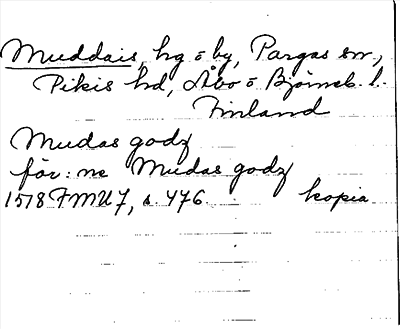 Muddais, hg o by, Pargas sn,
Pikis hd, Åbo o Björneb. l.
Finland
Mudas godz
för: ne Mudas godz
1518 FMU 7, s. 476. kopia